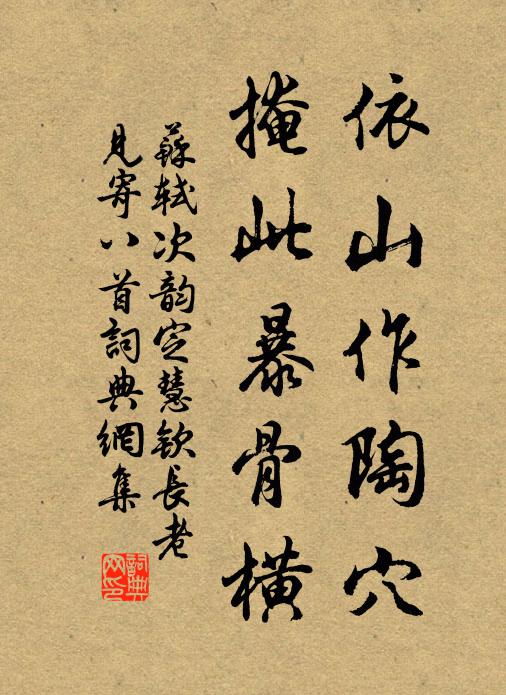 依山作陶穴
掩此暴骨橫
蘇軾次韵定慧欽長老
見寄八首詞典網集
詞典
网印